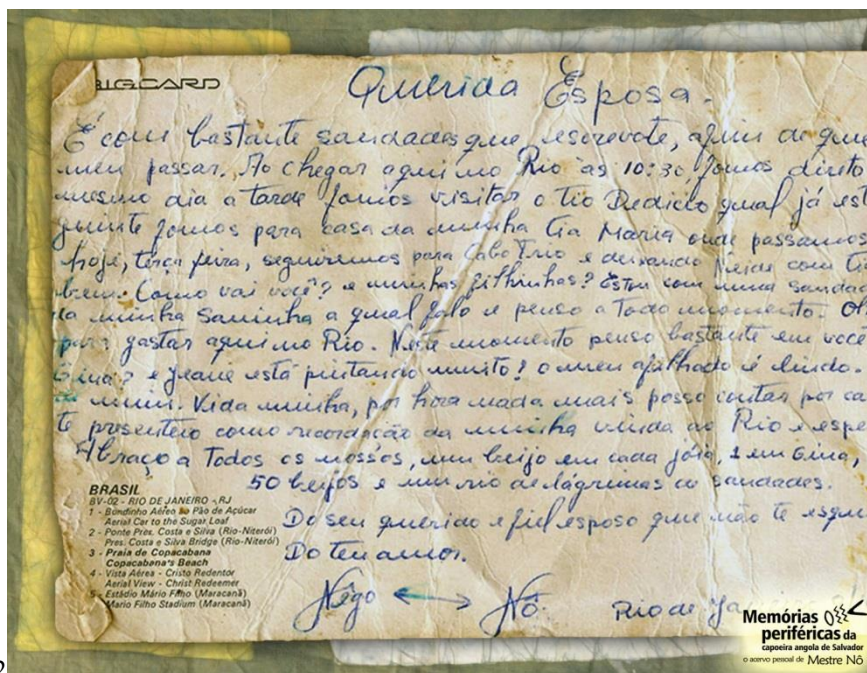 BIGCARD
Querida Esposa.
É com bastante saudades que escrevote, afim de que
meu passar. Ao chegar aqui no Rio às 10:30 fomos direto
mesmo dia a tarde fomos visitar o tio Dedicio qual já est
guinte fomos para casa da minha tia Maria onde passamos
hoje, terça feira, seguiremos para Cabo Frio e deixando Neide com ti
bem. Como vai você? e minhas filhinhas? Estou com uma saudad
da minha Saninha a qual falo e penso a todo momento.
para gastar aqui no Rio. Neste momento penso bastante em voce
Gina? e Jeane está pintando muito? o meu afilhado é lindo.
mim. Vida minha, por hora nada mais posso contar por ca
te presenteio como recordação da minha vinda ao Rio e espe
Abraço a Todos os nossos, um beijo em cada jóia, 1 em Gina,
50 beijos e um rio de lágrimas de saudades.
Do seu querido e fiel esposo que não te esque
Do teu amor.
Nêgo ↔ Nô.
Rio de Ja
BRASIL
BV-02 - RIO DE JANEIRO - RJ
1 - Bondinho Aéreo ao Pão de Açúcar
Aerial Car to the Sugar Loaf
2 - Ponte Pres. Costa e Silva (Rio-Niterói)
Pres. Costa e Silva Bridge (Rio-Niterói)
3 - Praia de Copacabana
Copacabana's Beach
4 - Vista Aérea - Cristo Redentor
Aerial View - Christ Redeemer
5 - Estádio Mário Filho (Maracanã)
Mario Filho Stadium (Maracanã)
Memórias
periféricas da
capoeira angola de Salvador
o acervo pessoal de Mestre Nô
2